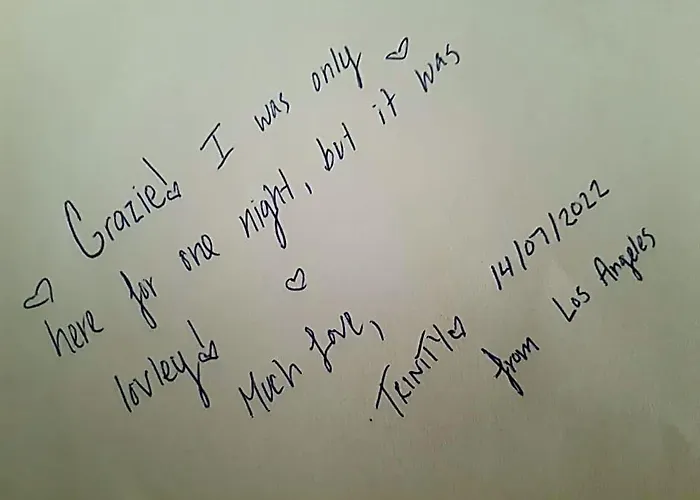 ♡ Grazie! I was only ♡
here for one night, but it was
lovley! ♡
Much love,
TRINITY♡ 14/07/2022
from Los Angeles